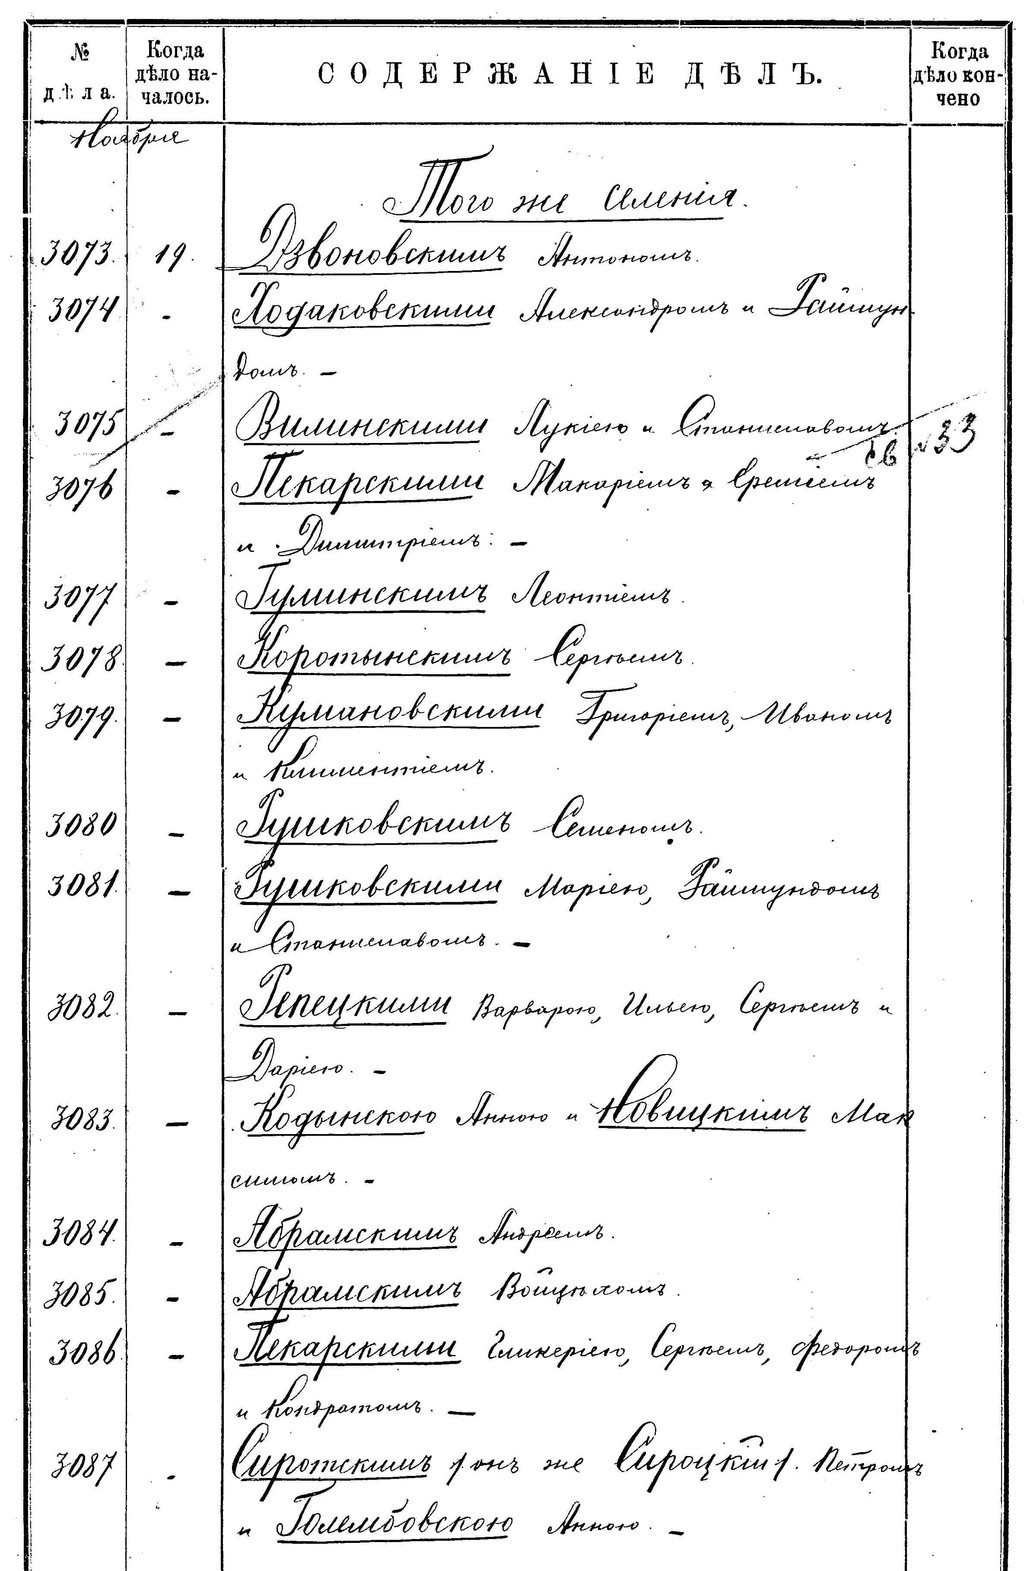 № дѣла. Когда дѣло началось. СОДЕРЖАНІЕ ДѢЛЪ. Когда дѣло кончено
Ноября
Того же селенія.
3073. 19. Дзвоновскимъ Антономъ.
3074 - Ходаковскими Александромъ и Раймун-
домъ. -
3075 - Вилинскими Лукіею и Станиславомъ
св 33
3076 - Пекарскими Макаріемъ Еремѣемъ
и Димитріемъ. -
3077 - Гуминскимъ Леонтіемъ.
3078 - Коротынскимъ Сергѣемъ.
3079. - Кумановскими Григоріемъ, Иваномъ
и Климентіемъ.
3080 - Рушковскимъ Семеномъ.
3081. - Рушковскими Маріею, Раймундомъ
и Станиславомъ. -
3082. - Репецкими Варварою, Ильею, Сергѣемъ и
Даріею. -
3083. - Кодынскою Анною и Новицкимъ Мак
симомъ. -
3084. - Абрамскимъ Андреемъ.
3085. - Абрамскимъ Войцѣхомъ.
3086. - Пекарскими Гликеріею, Сергѣемъ, Федоромъ
и Кондратомъ. -
3087 - Сиротскимъ /онъ же Сироцкій/. Петромъ
и Голембовскою Анною. -